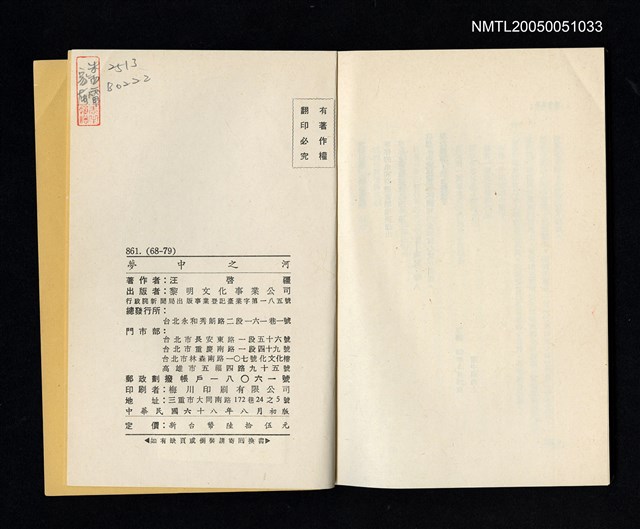 NMTL20050051033
2513
B0222
有著作權
翻印必究
861. (68-79)
夢中之河
著作者：汪啓疆
出版者：黎明文化事業公司
行政院新聞局出版事業登記臺業字第一八五號
總發行所：
台北永和秀朗路二段一六一巷一號
門市部：
台北市長安東路一段五十六號
台北市重慶南路一段四十九號
台北市林森南路一〇七號化文化樓
高雄市五福四路九十五號
郵政劃撥帳戶一八〇六一號
印刷者：梅川印刷有限公司
地址：三重市大同南路172巷24之5號
中華民國六十八年八月初版
定價：新台幣陸拾伍元
◀如有缺頁或倒裝請寄回換書▶